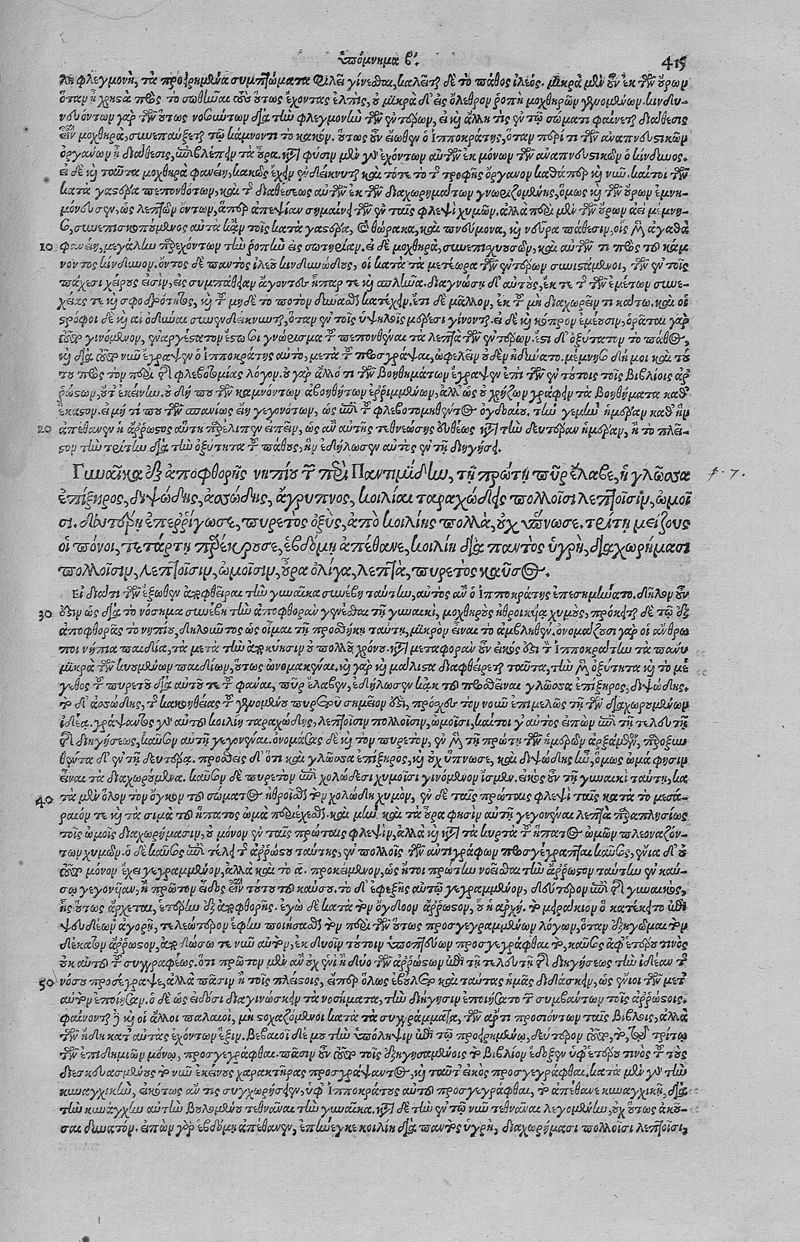 ὑπόμνημα β. 415
λη φλεγμονὴ, τὰ προειρημένα συμπτώματα φιλεῖ γίνεσθαι, καλεῖται δὲ τὸ πάθος ἰλεός. μικρὰ μὲν οὖν ἐκ τῶν οὔρων
ὅταν ᾖ χρηστὰ πρὸς τὸ σωθῆναι τοὺς οὕτως ἔχοντας ἐλπὶς, οὐ μικρὰ δ' εἰς ὄλεθρον ῥοπὴ μοχθηρῶν γενομένων. κινδυ-
νευόντων γὰρ τῶν οὕτως νοσούντων διὰ τὴν φλεγμονὴν τῶν ἐντέρων, εἰ καὶ ἄλλη τις ἐν τῷ σώματι φαίνεται διάθεσις
εἶναι μοχθηρὰ, συνεπαύξεται τῷ κάμνοντι τὸ κακόν. οὕτως οὖν εἴωθεν ὁ Ἱπποκράτης, ὅταν περί τι τῶν ἀναπνευστικῶν
ὀργάνων ᾖ διάθεσις, ἐπιβλέπειν τὰ οὖρα. κατὰ φύσιν μὲν γὰρ ἐχόντων αὐτῶν ἐκ μόνων τῶν ἀναπνευστικῶν ὁ κίνδυνος.
εἰ δὲ καὶ ταῦτα μοχθηρὰ φανείη, κακῶς ἔχειν ἐνδείκνυται καὶ τότε τὸ τῆς τροφῆς ὄργανον καθάπερ καὶ νῦν. καίτοι τῶν
κατὰ γαστέρα πεπονθότων, καὶ τῆς διαθέσεως αὐτῶν ἐκ τῶν διαχωρημάτων γνωριζομένης, ὅμως καὶ τῶν οὔρων ἐμνη-
μόνευσεν, ὡς λεπτῶν ὄντων, ἅπερ ἀπεψίαν σημαίνει τῶν ἐν ταῖς φλεψὶ χυμῶν. ἀλλὰ περὶ μὲν τῶν οὔρων ἀεὶ μέμνη-
σο, συνεπισκεπτόμενος αὐτὰ κἀν τοῖς κατὰ γαστέρα, καὶ θώρακα, καὶ πνεύμονα, καὶ νεῦρα πάθεσιν, οἷς ἂν ἀγαθὰ
10 φανείη, μεγάλην παρεχόντων τὴν ῥοπὴν εἰς σωτηρίαν. εἰ δὲ μοχθηρὰ, συνεπισχυόντων, καὶ αὐτῶν τι πρὸς τὸν κάμ-
νοντος κίνδυνον. ὄντος δὲ παντὸς ἰλεοῦ κινδυνώδους, οἱ κατὰ τὰ μετέωρα τῶν ἐντέρων συνιστάμενοι, τῶν ἐν τοῖς
πάχεσι χείρους εἰσὶν, εἰς συμπάθειαν ἄγοντες ἧπάρ τε καὶ σπλῆνα. διαγνώσῃ δ' αὐτοὺς, ἔκ τε τῆς τῶν ἐμέτων συνε-
χείας τε καὶ σφοδρότητος, καὶ τοῦ μηδὲ τὸ ποτὸν δύνασθαι κατέχειν. ἔτι δὲ μᾶλλον, ἐκ τοῦ μὴ διαχωρεῖν τι κάτω. καὶ οἱ
στρόφοι δὲ καὶ αἱ ὀδύναι συνενδείκνυνται, ὅταν ἐν τοῖς ὑψηλοῖς μέρεσι γίνονται. εἰ δὲ καὶ κόπρον ἐμέσειαν, ὁρᾶται γὰρ
τοῦτο γινόμενον, ἐναργέστατον ἔσται σοι γνώρισμα τοῦ πεπονθέναι τὰ λεπτὰ τῶν ἐντέρων. ἔστι δ' ὀξύτατον τὸ πάθος,
καὶ διὰ τοῦτο νῦν ἔγραψεν ὁ Ἱπποκράτης αὐτὸ, μετὰ τοῦ προσγράψαι, ὠφελεῖν οὐδὲν ἠδύνατο. μέμνησο δή μοι καὶ τοῦ-
το πρὸς τὸν περὶ τῆς φλεβοτομίας λόγον. οὐ γὰρ ἄλλο τι τῶν βοηθημάτων ἔγραψεν ἐπὶ τῶν ἐν τούτοις τοῖς βιβλίοις ἀρ-
ρώστων, οὔτ' ἐκείνων, οὐ δή που τῶν καμνόντων ἀβοηθήτων ἐρριμμένων, ἀλλ' ὡς οὐ χρῄζων γράφειν τὰ βοηθήματα καθ'
ἕκαστον. εἰ μή τί που σπανίως εἴη γεγονότων, ὡς ἐπὶ τοῦ φλεβοτομηθέντος ὀγδόου. τὴν γε μὴν ἡμέραν καθ' ἣν
20 ἀπέθανεν ἡ ἄρρωστος αὐτὴ παρέλιπεν εἰπεῖν, ὡς ἂν αὐτῆς τεθνεώσης εὐθέως κατὰ τὴν δευτέραν ἡμέραν, ἢ τὸ πλεῖ-
στον τὴν τρίτην διὰ τὴν ὀξύτητα τοῦ πάθους, ἣν ἐδήλωσεν αὐτὸς ἐν τῇ διηγήσει.
Γυναῖκα ἐξ ἀποφθορῆς νηπίου τοῦ περὶ Παντιμίδην, τῇ πρώτῃ πῦρ ἔλαβε, ἡ γλῶσσα
ἐπίξηρος, διψώδης, ἀσώδης, ἄγρυπνος, κοιλίαι ταραχώδεις πολλοῖσι λεπτοῖσιν, ὠμοῖ-
σι. δευτέρῃ ἐπερρίγωσε, πυρετὸς ὀξὺς, ἀπὸ κοιλίης πολλὰ, οὐχ ὕπνωσε. τρίτῃ μείζους
οἱ πόνοι, τετάρτῃ παρέκρουσε, ἑβδόμῃ ἀπέθανε, κοιλίη διὰ παντὸς ὑγρὴ, διαχωρήμασι
πολλοῖσιν, λεπτοῖσιν, ὠμοῖσιν, οὖρα ὀλίγα, λεπτὰ, πυρετὸς καῦσος.
Εἰ διά τι τῶν ἔξωθεν διαφθεῖραι τὴν γυναῖκα συνέβη ταύτην, αὐτὸς ἂν ὁ Ἱπποκράτης ἐπεσημήνατο. δῆλον οὖν
30 ἐστιν ὡς διὰ τὸ νόσημα συνέβη τὴν ἀποφθορὰν γενέσθαι τῇ γυναικὶ, μοχθηρὸς ἠθροίσθη χυμὸς, πρόκειται δὲ τῷ ἐξ
ἀποφθορᾶς τὸ νηπίου, δηλοῦντος ὡς οἶμαι τῇ προσθήκῃ ταύτῃ, μικρὸν εἶναι τὸ ἀμβλωθέν. ὀνομάζουσι γὰρ οἱ ἄνθρω-
ποι νήπια παιδία, τὰ μετὰ τὴν ἀποκύησιν οὐ πολλοῦ χρόνου. κατὰ μεταφορὰν οὖν εἰκός ἐστι τὸν Ἱπποκράτην τὰ πάνυ
μικρὰ τῶν κυουμένων παιδίων, οὕτως ὠνομακέναι. καὶ γὰρ καὶ μάλιστα διαφθείρεται ταῦτα, τὴν μὲν ὀξύτητα καὶ τὸ μέ-
γεθος τοῦ πυρετοῦ διὰ αὐτοῦ τε τοῦ φάναι, πῦρ ἔλαβεν, ἐδήλωσεν κἀκ τοῦ προσθεῖναι γλῶσσα ἐπίξηρος, διψώδης.
τὸ δ' ἀσώδης, τῆς κακοηθείας τοῦ γενομένου πυρετοῦ σημεῖόν ἐστι, πρόσχες τὸν νοῦν ἐπιμελῶς τῇ τῶν διαχωρουμένων
ἰδέᾳ. γράψαντος γὰρ αὐτοῦ κοιλίη ταραχώδης, λεπτοῖσιν πολλοῖσιν, ὠμοῖσι, καίτοι γ' αὐτὸς εἰπὼν ἐπὶ τῇ τελευτῇ
τῆς διηγήσεως, καῦσον αὐτῇ γεγονέναι. ὀνομάζας δὲ καὶ τὸν πυρετὸν, ἐν μὲν τῇ πρώτῃ τῶν ἡμερῶν ἀρξάμενον, παροξυν-
θέντα δ' ἐν τῇ δευτέρᾳ. προσθεὶς δ' ὅτι καὶ γλῶσσα ἐπίξηρος, καὶ οὐχ ὕπνωσε, καὶ διψώδης ἦν, ὅμως ὠμά φησιν
εἶναι τὰ διαχωρούμενα. καῦσον δὲ πυρετὸν ἐπὶ χολώδεσι χυμοῖσι γινόμενον ἴσμεν. εἰκὸς οὖν τῇ γυναικὶ ταύτῃ, κα-
40 τὰ μὲν ὅλον τὸν ὄγκον τοῦ σώματος ἠθροῖσθαι τὸν χολώδη χυμὸν, ἐν δὲ ταῖς πρώταις φλεψὶ ταῖς κατὰ τὸ μεσά-
ραιόν τε καὶ τὰ σιμὰ τοῦ ἥπατος ὠμὰ περιέχεσθαι. καὶ μὴν καὶ τὰ οὖρά φησιν αὐτῇ γεγονέναι λεπτὰ παραπλησίως
τοῖς ὠμοῖς διαχωρήμασιν, οὐ μόνον ἐν ταῖς πρώταις φλεψὶν, ἀλλὰ καὶ κατὰ τὰ κυρτὰ τοῦ ἥπατος ὠμῶν πλεοναζόν-
των χυμῶν. ὁ δὲ καῦσος ἐπὶ τέλει τῆς ἀρρώστου ταύτης, ἐν πολλοῖς τῶν ἀντιγράφων προσγέγραπται καῦσος, ἔνια δ' οὐ
τοῦτο μόνον ἔχει γεγραμμένον, ἀλλὰ καὶ τὸ α. προκείμενον, ὡς ἤτοι πρώτην νοεῖσθαι τῶν ἀρρώστων ταύτην καύ-
σῳ γεγονυῖαν, ἢ πρῶτον εἶδος εἶναι τοῦτο τοῦ καύσου. τὸ δ' ἐφεξῆς αὐτῷ γεγραμμένον, δεύτερον ἐπὶ τῆς γυναικὸς,
ἧς οὕτως ἄρχεται, ἑτέρην ἐξ ἀποφθορῆς. ἐγὼ δὲ κατὰ τὸν ὄγδοον ἄρρωστον, οὗ ἡ ἀρχὴ, τὸ μειράκιον ὃ κατέκειτο ἐπὶ
ψευδέων ἀγορῇ, τελεώτερον ἔφην ποιήσασθαι τὸν περὶ τῶν οὕτως προσγεγραμμένων λόγον, ὅταν ἐξηγῶμαι τὸν
δέκατον ἄρρωστον, ἀποδώσω τε νῦν αὐτὸν, ἐκ δυοῖν τούτοιν ὑποπτεύων προσγεγράφθαι τὸ, καῦσος ἀφ' ἑτέρου τινὸς
οὐκ αὐτοῦ τοῦ συγγραφέως. ὅτι πρῶτον μὲν αὖ οὐχ ἑνὶ ἢ δύο τῶν ἀρρώστων ἐπὶ τῇ τελευτῇ τῆς διηγήσεως τὴν ἰδέαν τῆς
50 νόσου προσέγραψε, ἀλλὰ πᾶσιν ἢ τοῖς πλείστοις, εἴπερ ὅλως ἐβούλετο καὶ ταύτας ἡμᾶς διδάσκειν, ὡς ἔνιοι τῶν μετ'
αὐτὸν ἐποίησαν. ὁ δὲ ὡς εἰδόσι διαγινώσκειν τὰ νοσήματα, τὴν διήγησιν ἐποιήσατο τῶν συμβάντων τοῖς ἀρρώστοις.
φαίνονται γὰρ καὶ οἱ ἄλλοι παλαιοὶ, μὴ στοχαζόμενοι κατὰ τὰ συγγράμματα, τῶν ἄρτι προσιόντων ταῖς βίβλοις, ἀλλὰ
τῶν ἤδη κατ' αὐτὰς ἐχόντων ἕξιν. βεβαιοῖ δέ μοι τὴν ὑπόληψιν ἐπὶ τῷ προειρημένῳ, δεύτερον τοῦτο, τὸ, ἐν τῷ τρίτῳ
τῶν ἐπιδημιῶν μόνῳ, προσγεγράφθαι. πᾶσιν οὖν τοῦτο τοῖς ἐξηγησαμένοις τὸ βιβλίον ἔδοξεν ὑφ' ἑτέρου τινὸς τοῦ τοὺς
διεσκευασμένους τὸ νῦν ἐκείνους χαρακτῆρας προσγράψαντος, καὶ ταῦτ' εἰκὸς προσγεγράφθαι. κατὰ μὲν γὰρ τὴν
κυναγχικὴν, εἰκότως ἄν τις συγχωρήσειεν, ὑφ' Ἱπποκράτους αὐτοῦ προσγεγράφθαι, τὸ ἀπέθανε κυναγχικὴ, διὰ
τὴν κυνάγχην αὐτὴν βουλομένου τεθνάναι τὴν γυναῖκα. κατὰ δὲ τὴν ἐν τῷ νῦν τεθνάναι λεγομένην, οὐχ οὕτως ἀκοῦ-
σαι δυνατόν. εἰπὼν γὰρ ἑβδόμῃ ἀπέθανεν, ἐπήνεγκε κοιλίη διὰ παντὸς ὑγρὴ, διαχωρήμασι πολλοῖσι λεπτοῖσι,